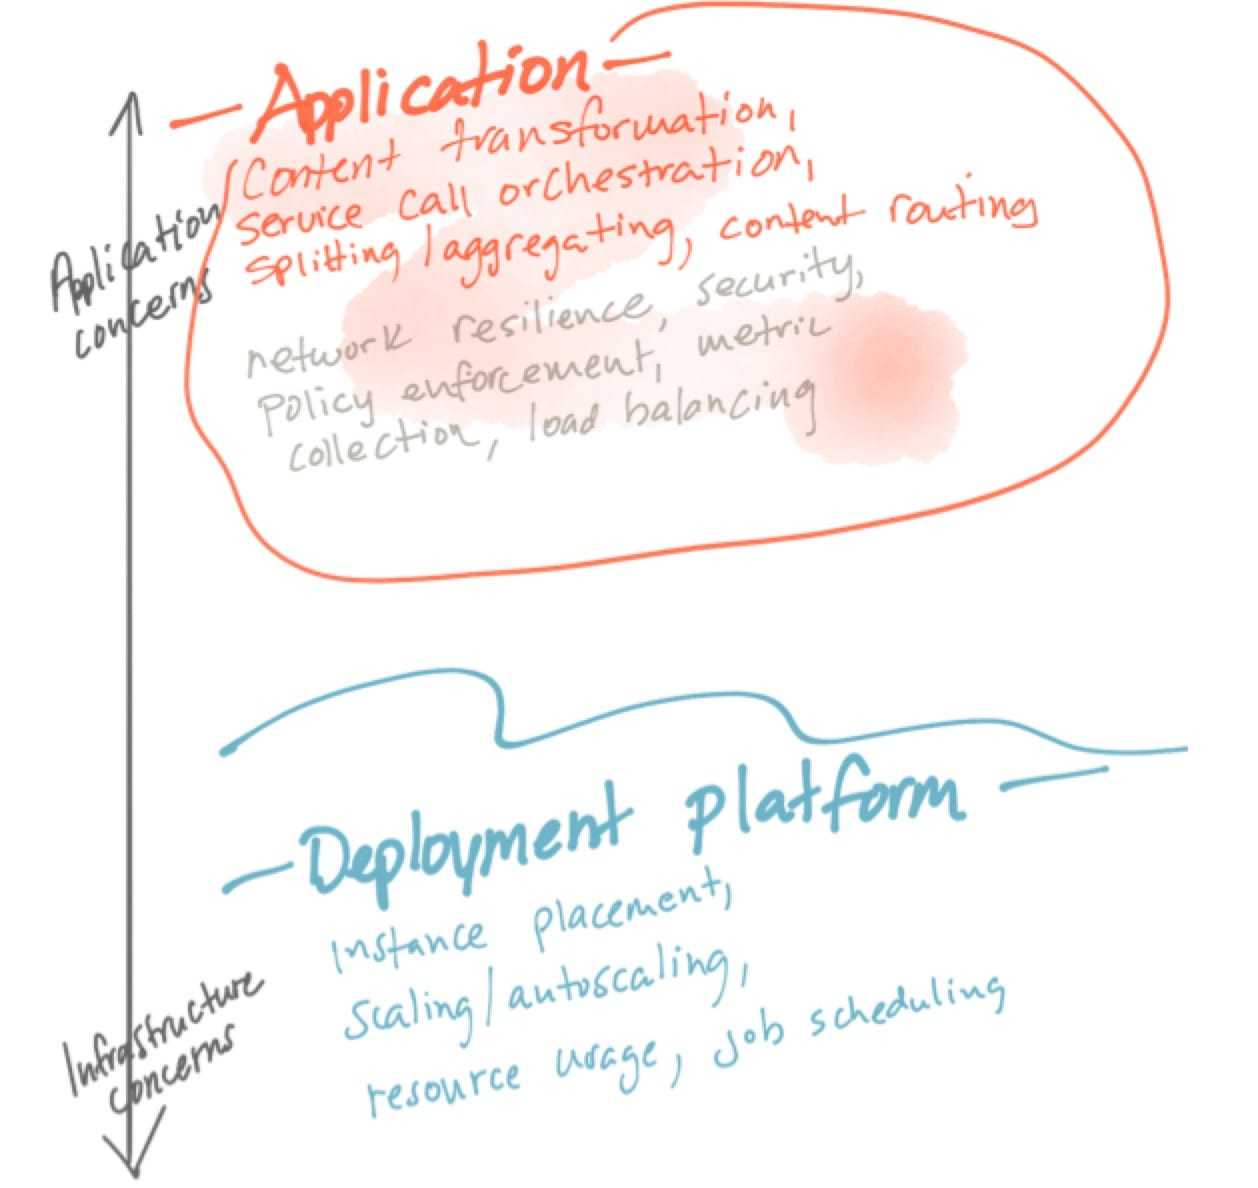 Application
Content transformation,
service call orchestration,
splitting/aggregating, content routing
network resilience, security,
policy enforcement, metric
collection, load balancing
Application
concerns
Deployment platform
Instance placement,
scaling/autoscaling,
resource usage, job scheduling
Infrastructure
concerns